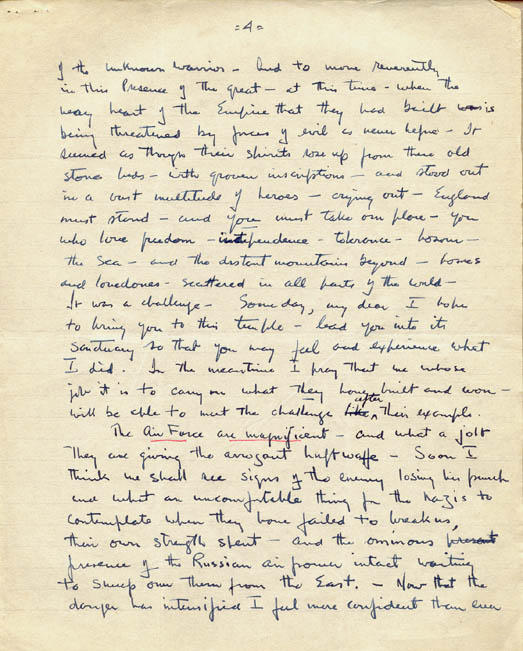 =4=
of the unknown warrior - And to move reverently
in this Presence of the great - at this time - when the
very heart of the Empire that they had built is
being threatened by forces of evil as never before - It
seemed as though their spirits rose up from there old
stone beds - with graven inscriptions - and stood out
in a vast multitude of heroes - crying out - England
must stand - and you must take our place - you
who love freedom - independence - tolerance -
the sea - and the distant mountains beyond - homes
and lovedones - scattered in all parts of the world -
It was a challenge - Someday, my dear I hope
to bring you to this temple - lead you into its
sanctuary so that you may feel and experience what
I did. In the meantime I pray that we whose
job it is to carry on what they have built and won -
will be able to meet the challenge like after their example.
The Air Force are magnificent - and what a jolt
They are giving the arrogant luftwaffe - Soon I
think we shall see signs of the enemy losing his punch
and what an uncomfortable thing for the Nazis to
contemplate when they have failed to break us,
their own strength spent - and the ominous present
presence of the Russian air power intact waiting
to sweep over them from the East. - Now that the
danger has intensified I feel more confident than ever